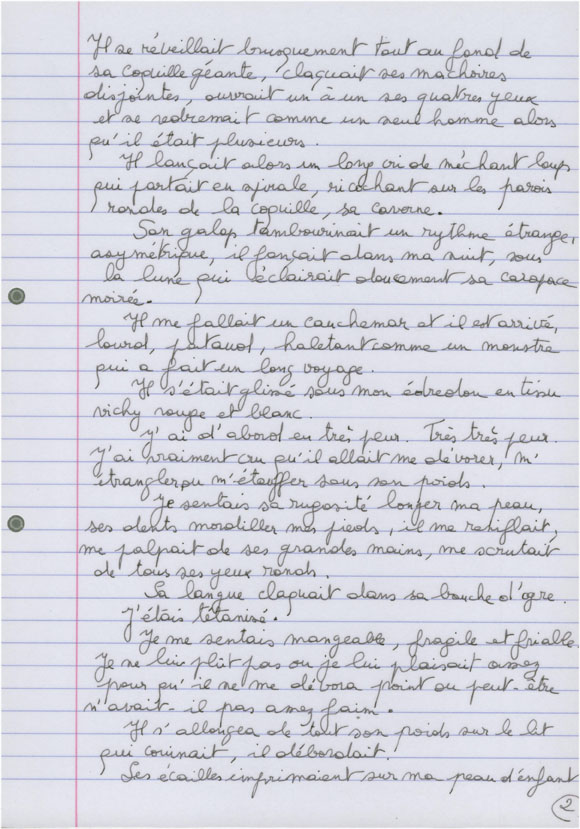 Il se réveillait brusquement tout au fond de
sa coquille géante, claquait ses machoires
disjointes, ouvrait un à un ses quatres yeux
et se redressait comme un seul homme alors
qu'il était plusieurs.
Il lançait alors un long cri de méchant loup
qui partait en spirale, ricochant sur les parois
rondes de la coquille, sa caverne.
Son galop tambourinait un rythme étrange,
asymétrique, il fonçait dans ma nuit, sous
la lune qui l'éclairait doucement sa carapace
moirée.
Il me fallait un cauchemar et il est arrivé,
lourd, pataud, haletant comme un monstre
qui a fait un long voyage.
Il s'était glissé sous mon édredon en tissu
vichy rouge et blanc.
J'ai d'abord eu très peur. Très très peur.
J'ai vraiment cru qu'il allait me dévorer, m'
étrangler ou m'étouffer sous son poids.
Je sentais sa rugosité longer ma peau,
ses dents mordiller mes pieds, il me reniflait,
me palpait de ses grandes mains, me scrutait
de tous ses yeux ronds.
Sa langue claquait dans sa bouche d'ogre.
J'étais tétanisé.
Je me sentais mangeable, fragile et friable.
Je ne lui plût pas ou je lui plaisait assez
pour qu'il ne me dévora point ou peut-être
n'avait-il pas assez faim.
Il s'allongea de tout son poids sur le lit
qui couinait, il débordait.
Ses écailles imprimaient sur ma peau d'enfant
2